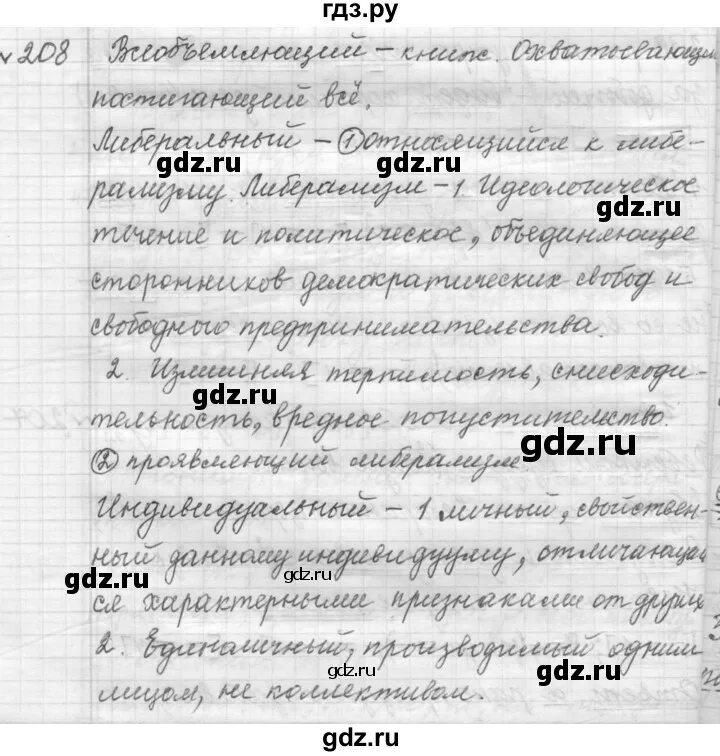 гдз.ру
№208 Всеобъемлющий – книж. Охватывающий,
постигающий всё.
Либеральный – ① относящийся к либе-
gdz.ru
gdz.ru
рализму. Либерализм – 1. Идеологическое
gdz.ru
течение и политическое, объединяющее
сторонников демократических свобод и
свободного предпринимательства.
2. Излишняя терпимость, снисходи-
gdz.ru
тельность, вредное попустительство.
gdz.ru
② проявляющий либерализм.
Индивидуальный – 1 личный, свойствен-
ный данному индивидууму, отличающи
gdz.ru
gdz.ru
ся характерными признаками от других
gdz.ru
2. Единоличный, производимый одним
gdz.ru
лицом, не коллективом.
gdz.ru